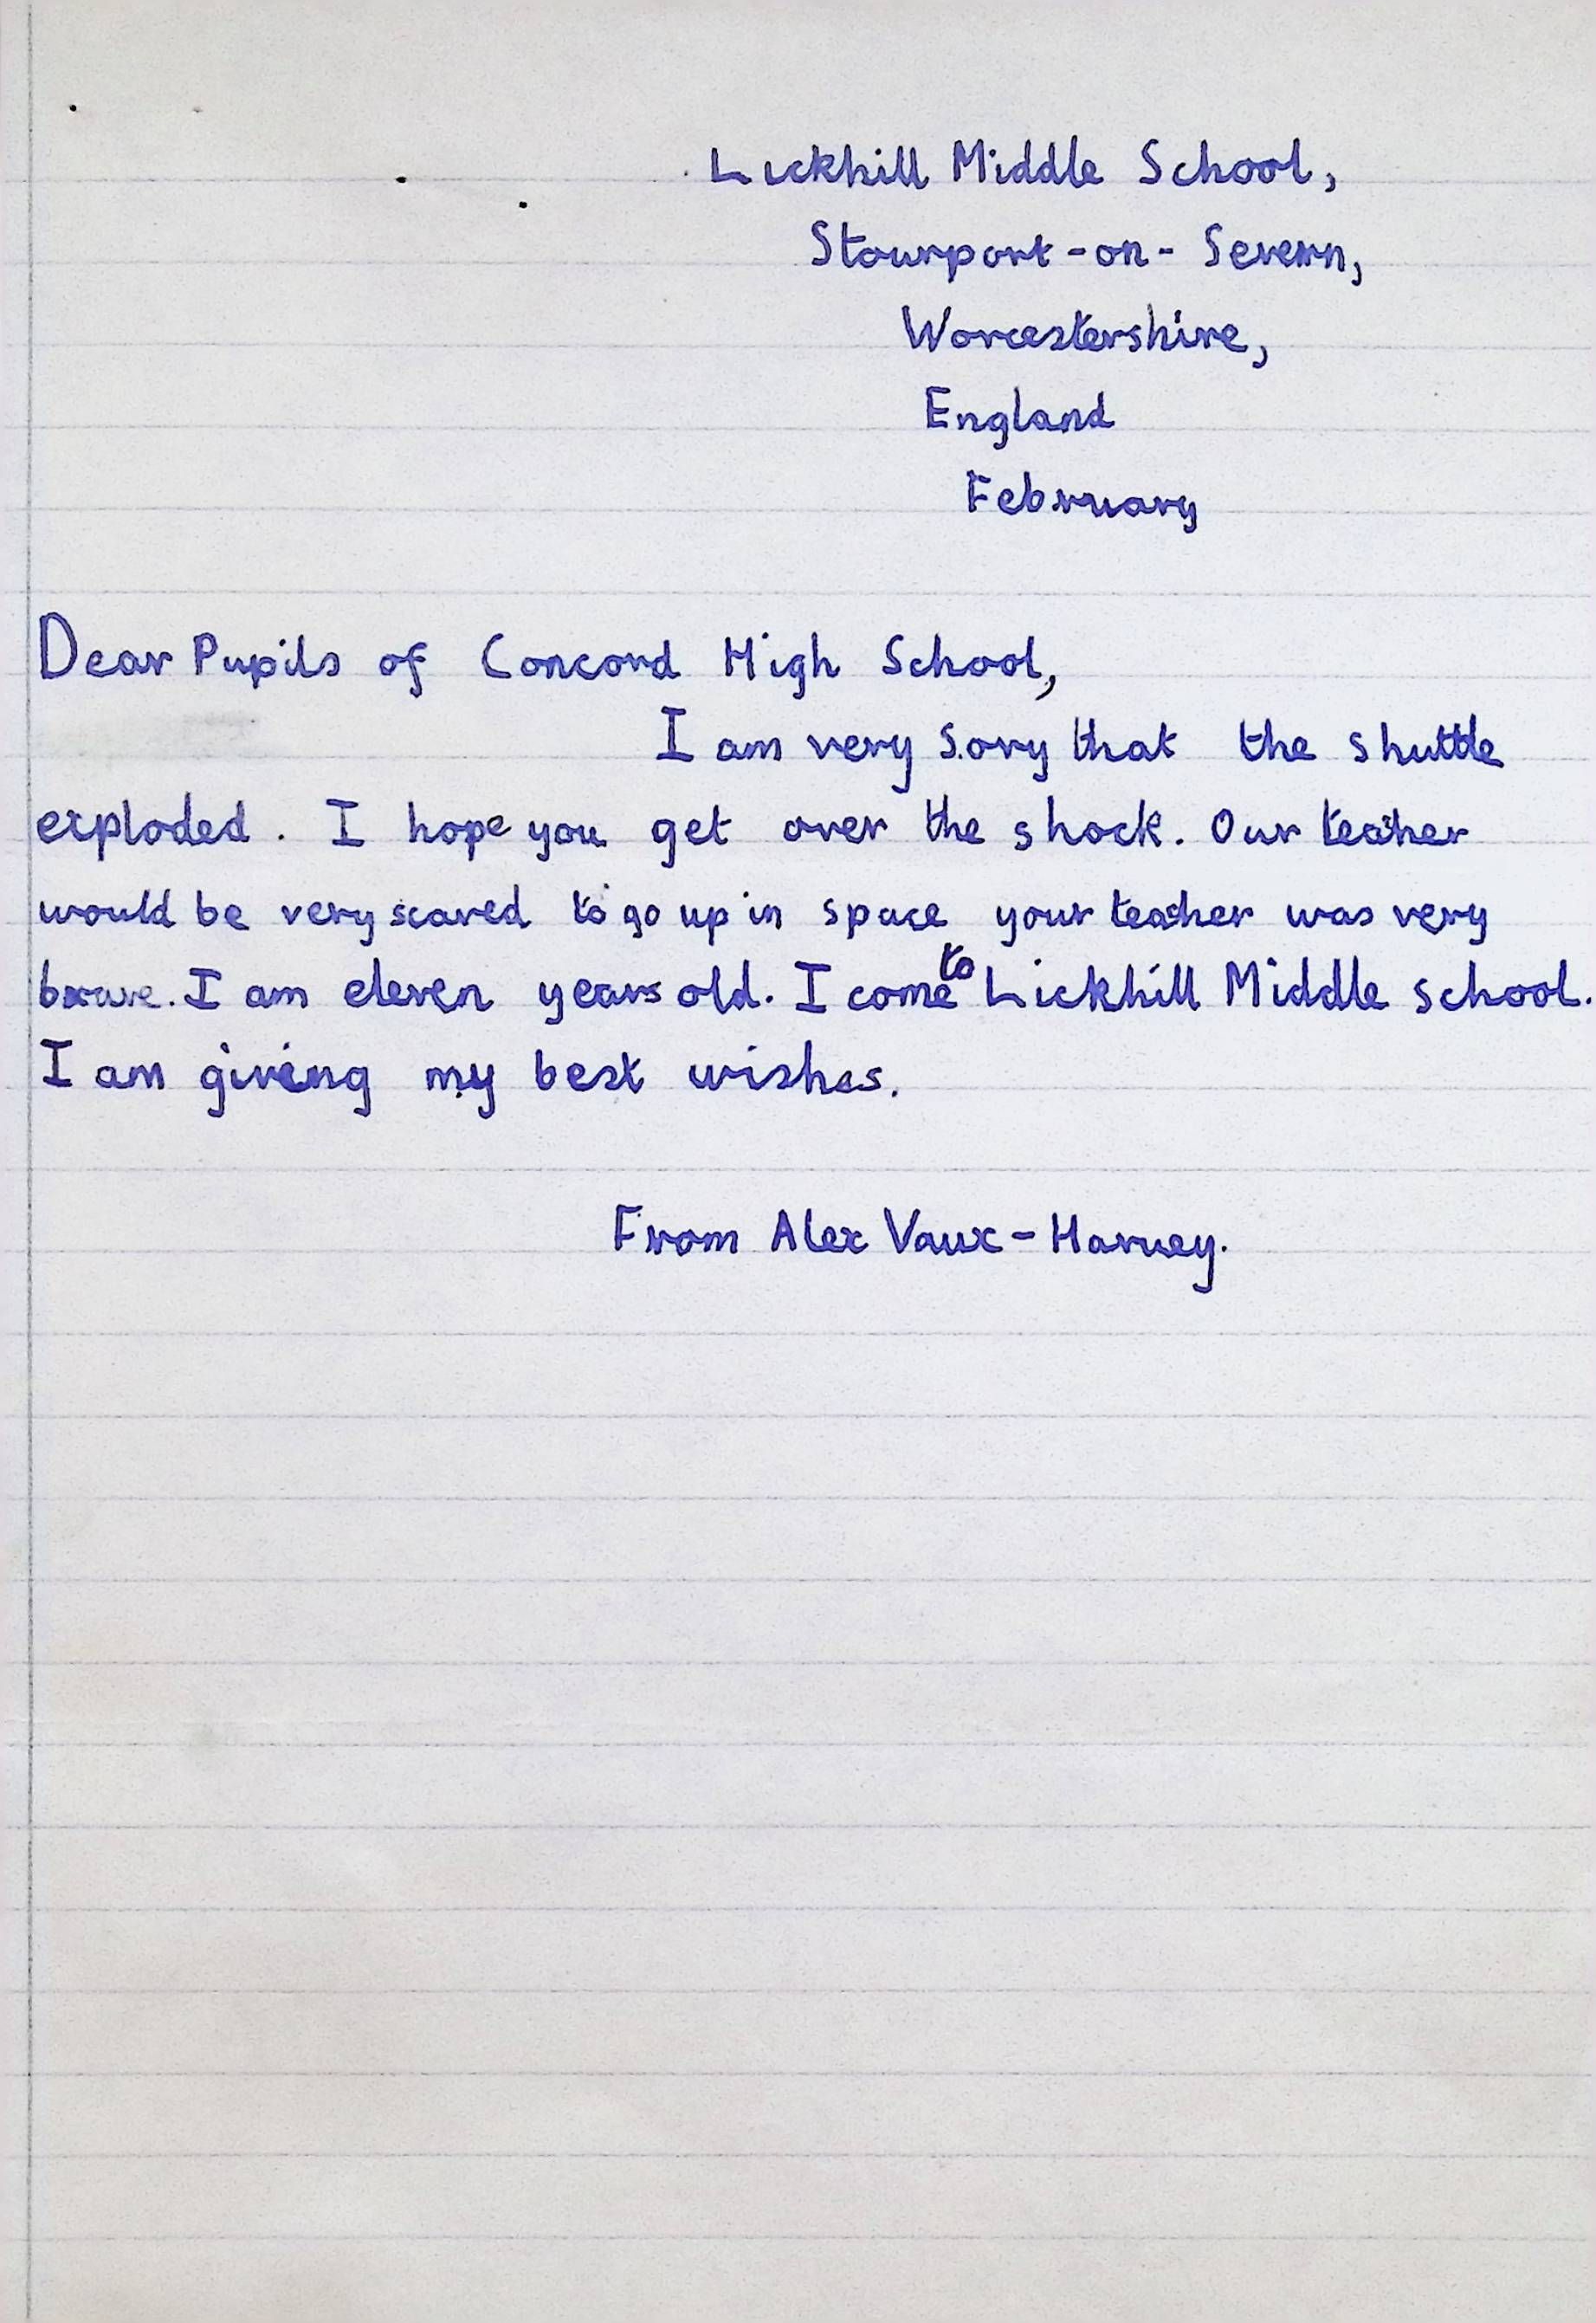 Lickhill Middle School,
Stourport-on-Severn,
Worcestershire,
England
February
Dear Pupils of Concord High School,
I am very sory that the shuttle
exploded. I hope you get over the shock. Our teacher
would be very scared to go up in space your teacher was very
brave. I am eleven years old. I come to Lickhill Middle school.
I am giving my best wishes.
From Alex Vaux-Harvey.